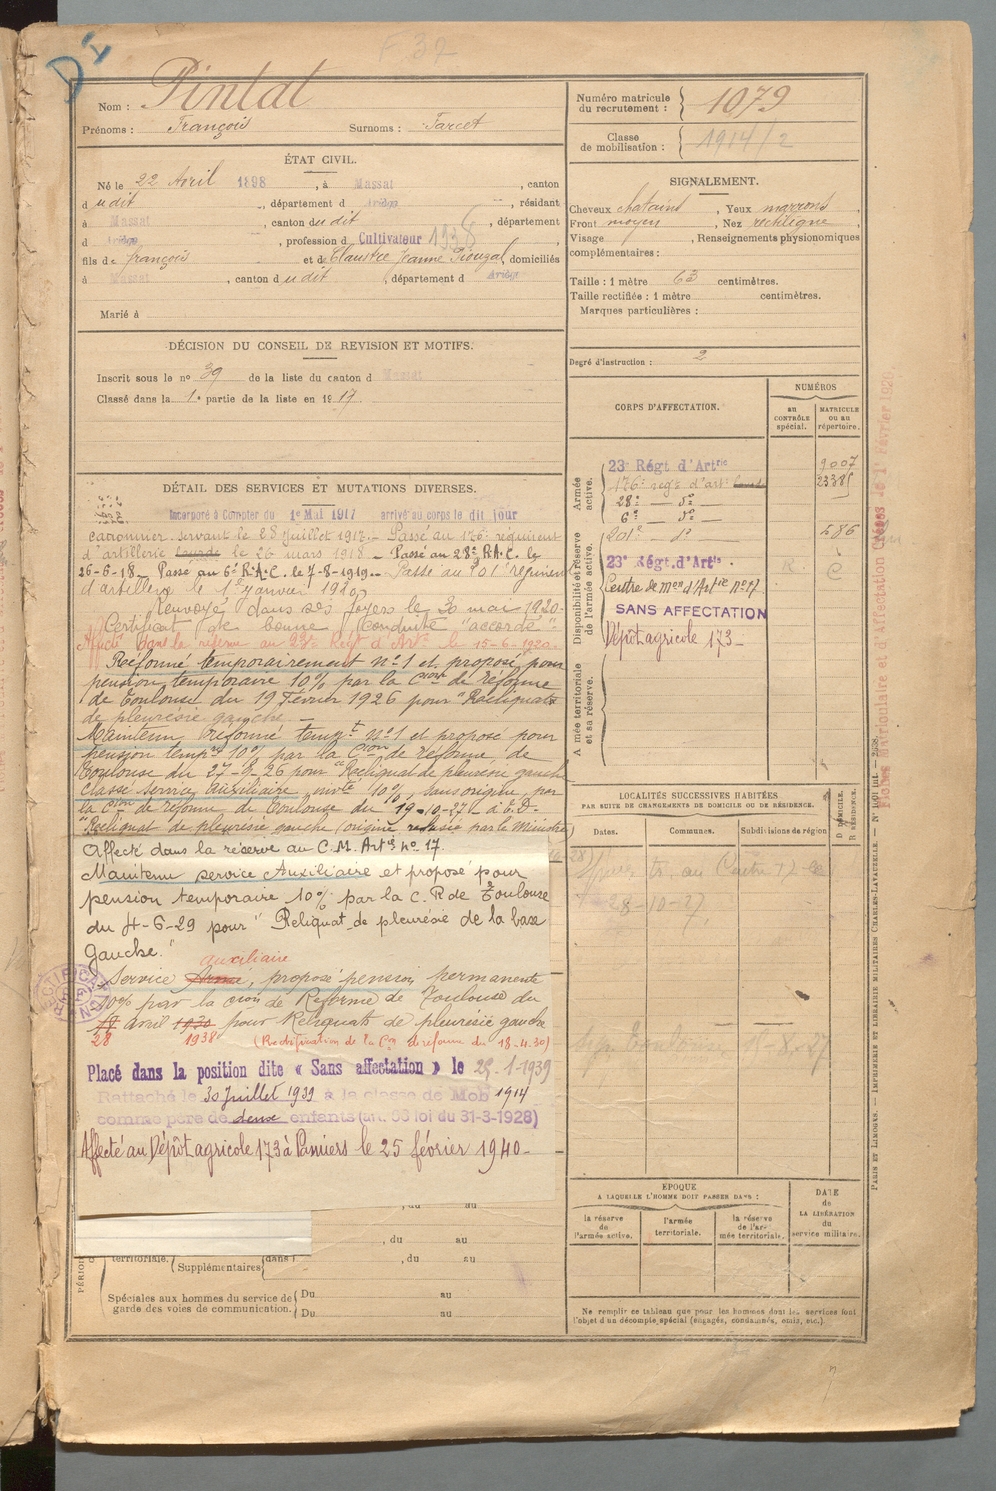 D I
F 32
Nom : Pintat
Prénoms : François Surnoms : Farcet
ÉTAT CIVIL.
Né le 22 Avril 1898, à Massat, canton
dudit, département d Ariège, résidant
à Massat, canton dudit, département
d Ariège, profession d Cultivateur 1938
fils de François et de Claustre Jeanne domiciliés
à Massat, canton dudit, département d Ariège
Marié à
DÉCISION DU CONSEIL DE REVISION ET MOTIFS.
Inscrit sous le no 39 de la liste du canton d Massat
Classé dans la 1e partie de la liste en 1917.
DÉTAIL DES SERVICES ET MUTATIONS DIVERSES.
Incorporé à Compter du 1e Mai 1917 arrivé au corps le dit jour
canonnier servant le 28 Juillet 1917.- Passé au 176e régiment
d'artillerie lourde le 26 mars 1918 - Passé au 28e R.A.C. le
26-6-18.- Passé au 6e R.A.C. le 7-8-1919.- Passé au 201e régiment
d'artillerie le 1er janvier 1920
Renvoyé dans ses foyers le 30 mai 1920-
Certificat de bonne conduite "accordé"
Affecté dans la réserve au 23e Régt d'Artie le 15-6-1920.
Réformé temporairement no 1 et proposé pour
pension temporaire 10% par la Cion de réforme
de Toulouse du 19 Février 1926 pour "Reliquats
de pleurésie gauche -
Maintenu réformé tempt no 1 et proposé pour
pension tempre 10% par la Cion de réforme de
Toulouse du 27-9-26 pour "Reliquat de pleurésie gauche
Classé service auxiliaire invté 10%, sans origine, par
la Cion de réforme de Toulouse du 19-10-27 à E.D.
"Reliquat de pleurésie gauche (origine refusée par le Ministre
Affecté dans la réserve au C.M. Artie no 17.
Maintenu service Auxiliaire et proposé pour
pension temporaire 10% par la C. R de Toulouse
du 4-6-29 pour "Reliquat de pleurésie de la base
gauche."
auxiliaire
Service Armé, proposé pension permanente
10% par la cion de Réforme de Toulouse du
17 avril 1930 pour Reliquats de pleurésie gauche
28 1938 (Rectification de la Con de réforme du 18-4-30)
Placé dans la position dite « Sans affectation » le 25-1-1939
Rattaché le 30 Juillet 1939 à la classe de Mob 1914
comme père de deux enfants (art. 58 loi du 31-3-1928)
Affecté au Dépôt agricole 173 à Pamiers le 25 février 1940-
du au
, du au
territoriale. Supplémentaires dans , du au
Spéciales aux hommes du service de garde des voies de communication. Du au
Du au
Numéro matricule du recrutement : 1079
Classe de mobilisation : 1914/2
SIGNALEMENT.
Cheveux chatains, Yeux marrons,
Front moyen, Nez rectiligne,
Visage , Renseignements physionomiques
complémentaires :
Taille : 1 mètre 63 centimètres.
Taille rectifiée : 1 mètre centimètres.
Marques particulières :
Degré d'instruction : 2
CORPS D'AFFECTATION.
NUMÉROS
au CONTRÔLE spécial.
MATRICULE ou au répertoire.
Armée active.
23e Régt d'Artrie 9007
176e regt d'art lourde 23385
28e - do -
6e - do -
201e - do 486
Disponibilité et réserve de l'armée active.
23e Régt.d'Artie R. C
Centre de Mon d'Artrie No 17.
SANS AFFECTATION
Dépôt agricole 173-
Armée territoriale et sa réserve.
LOCALITÉS SUCCESSIVES HABITÉES
PAR SUITE DE CHANGEMENTS DE DOMICILE OU DE RÉSIDENCE.
Dates. Communes. Subdivisions de région
D DOMICILE. R RÉSIDENCE.
28-10-27.
Toulouse 11-8-27
EPOQUE
A LAQUELLE L'HOMME DOIT PASSER DANS :
la réserve de l'armée active.
l'armée territoriale.
la réserve de l'armée territoriale.
DATE de LA LIBÉRATION du service militaire.
Ne remplir ce tableau que pour les hommes dont les services font
l'objet d'un décompte spécial (engagés, condamnés, omis, etc.).
PARIS ET LIMOGES. — IMPRIMERIE ET LIBRAIRIE MILITAIRES CHARLES-LAVAUZELLE.
Fiches Matriculaire et d'Affectation Créées le 1er Février 1928